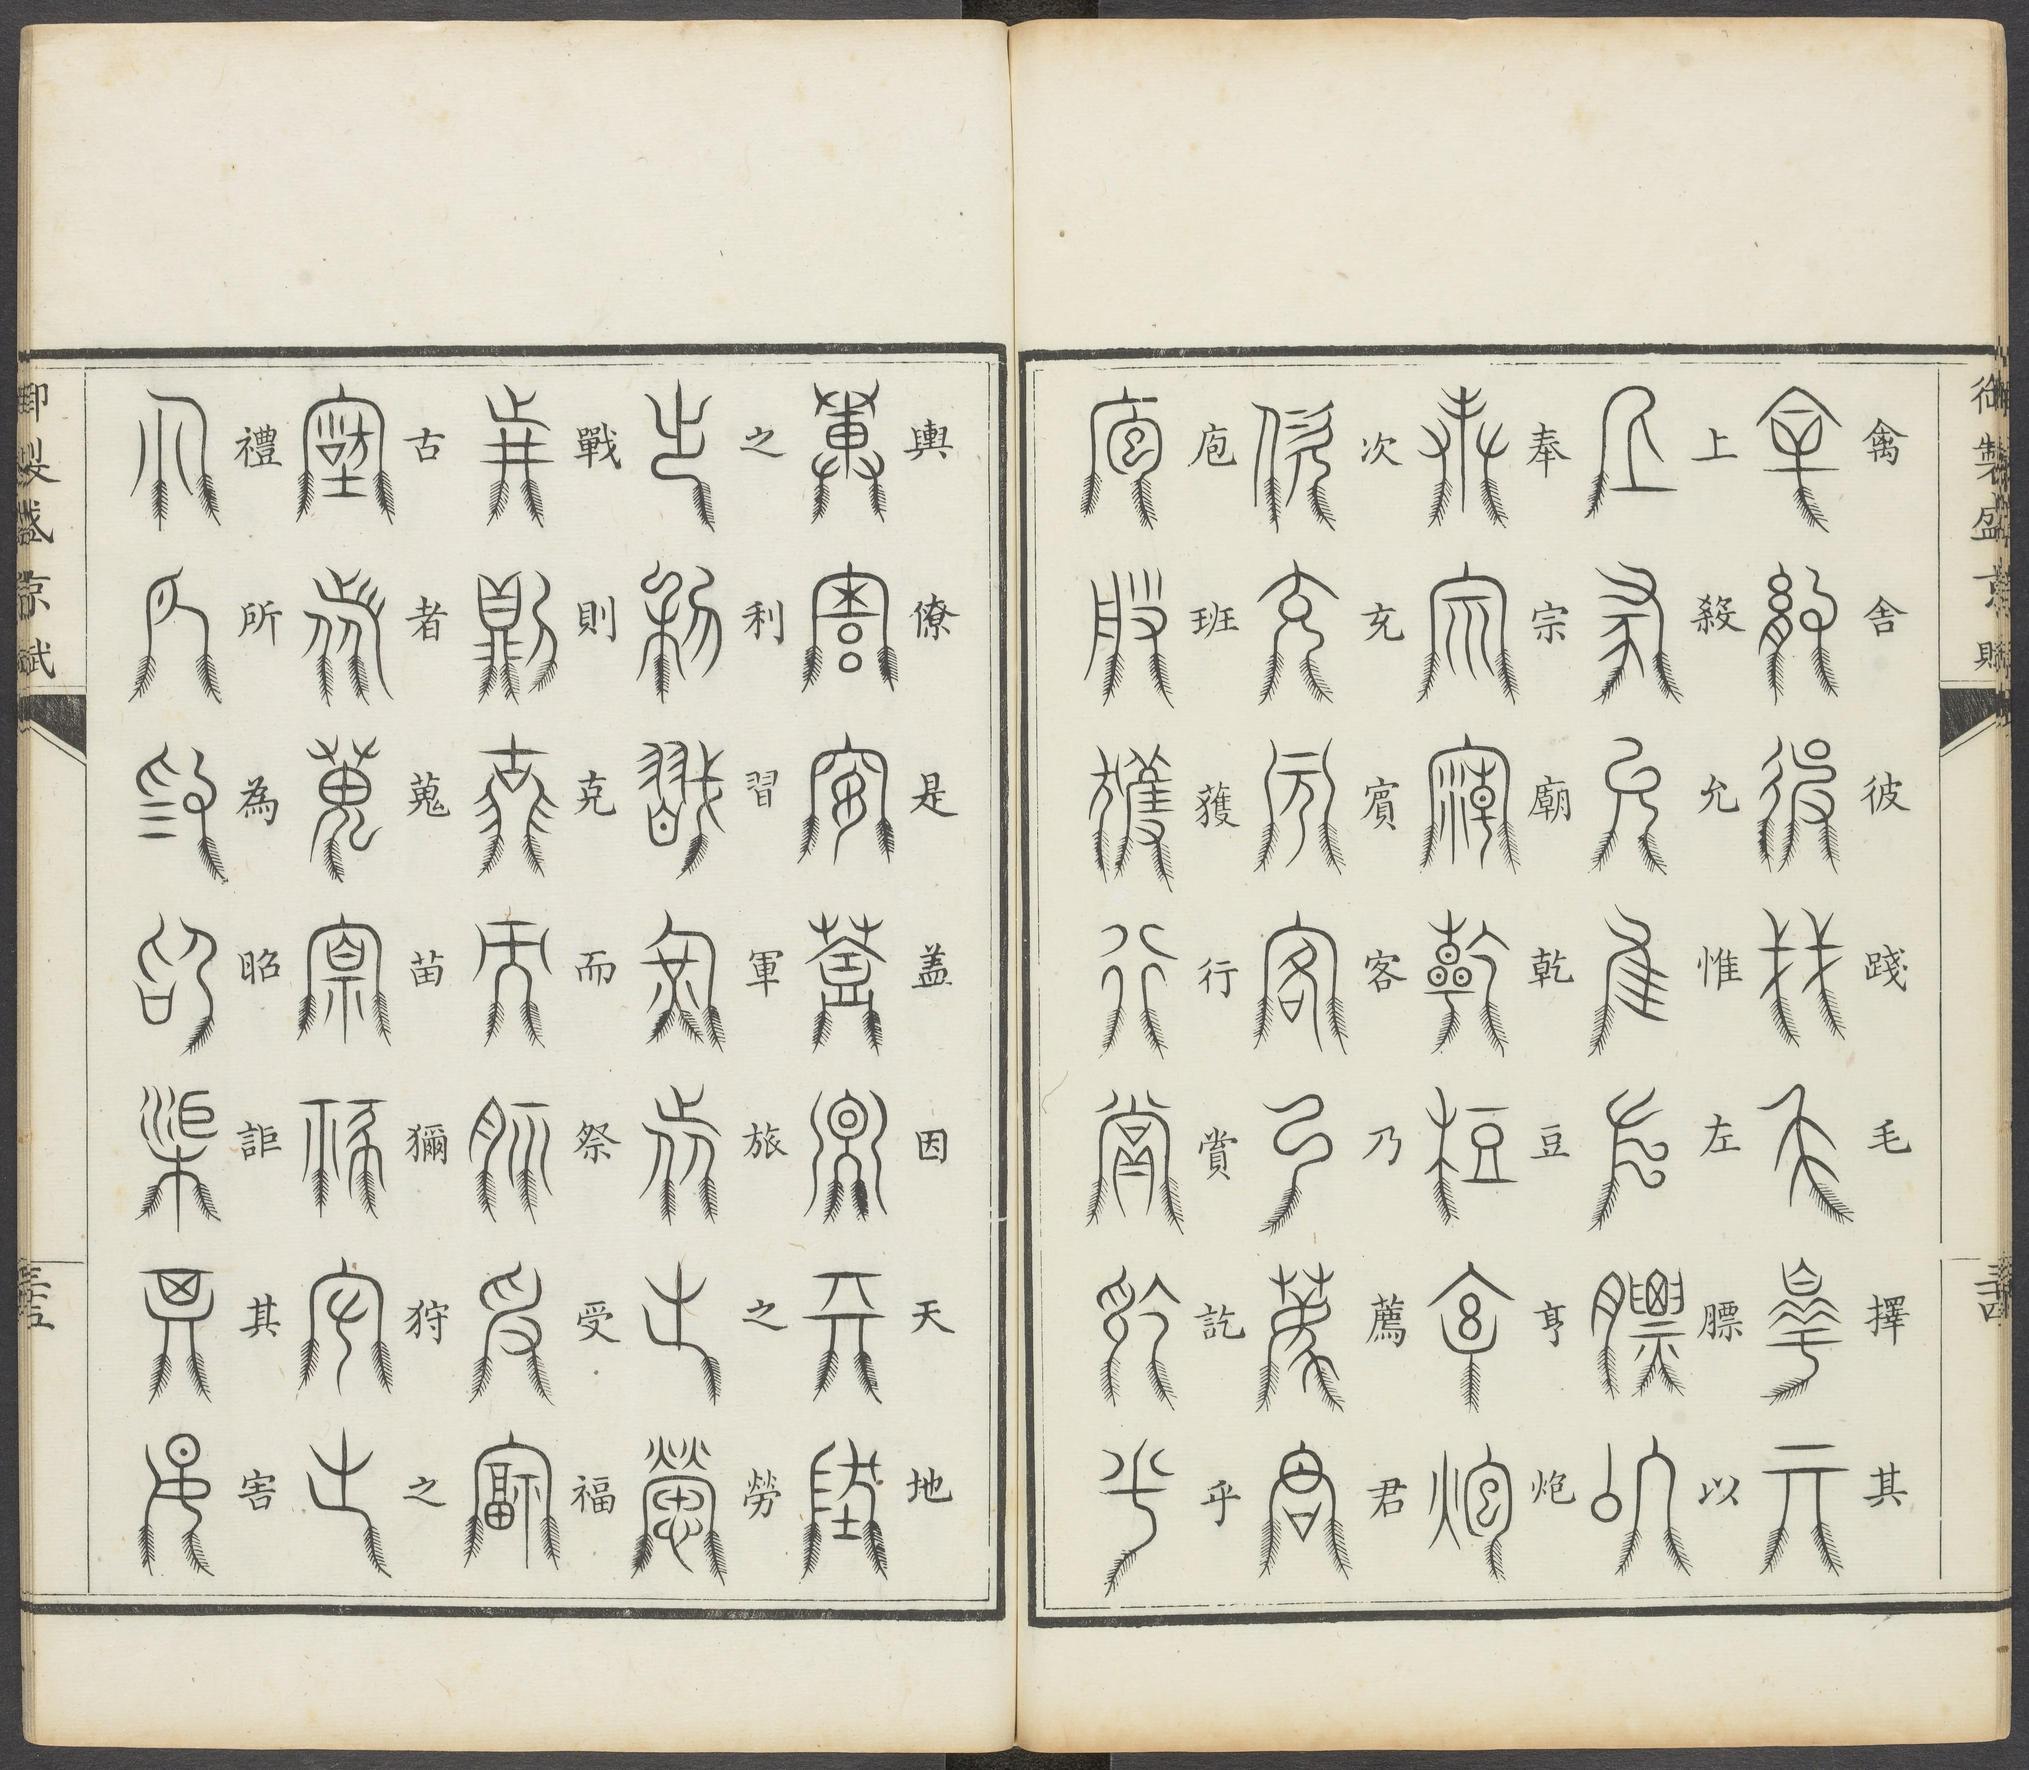 御製盛京賦
三十四
禽舍彼踐毛擇其
上殺允惟左膘以
奉宗廟乾豆亨炮
次充賓客乃薦君
庖班獲行賞訖乎
輿僚是盖因天地
之利習軍旅之勞
戰則克而祭受福
古者蒐苗獮狩之
禮所為昭詎其害
御製盛京賦
三十五